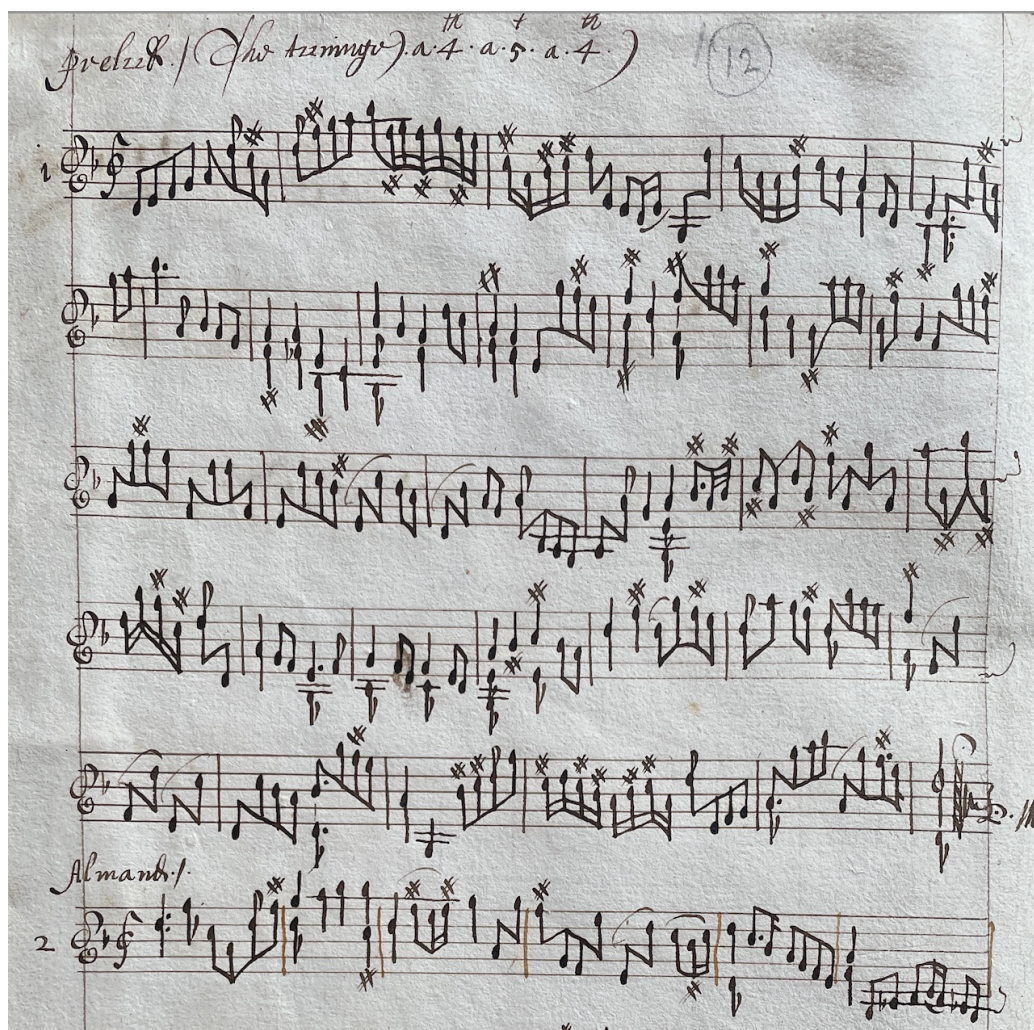 Prelud./ (The tuninge). a. 4th. a. 5t. a. 4th.) (12)
1
Almand./.
2